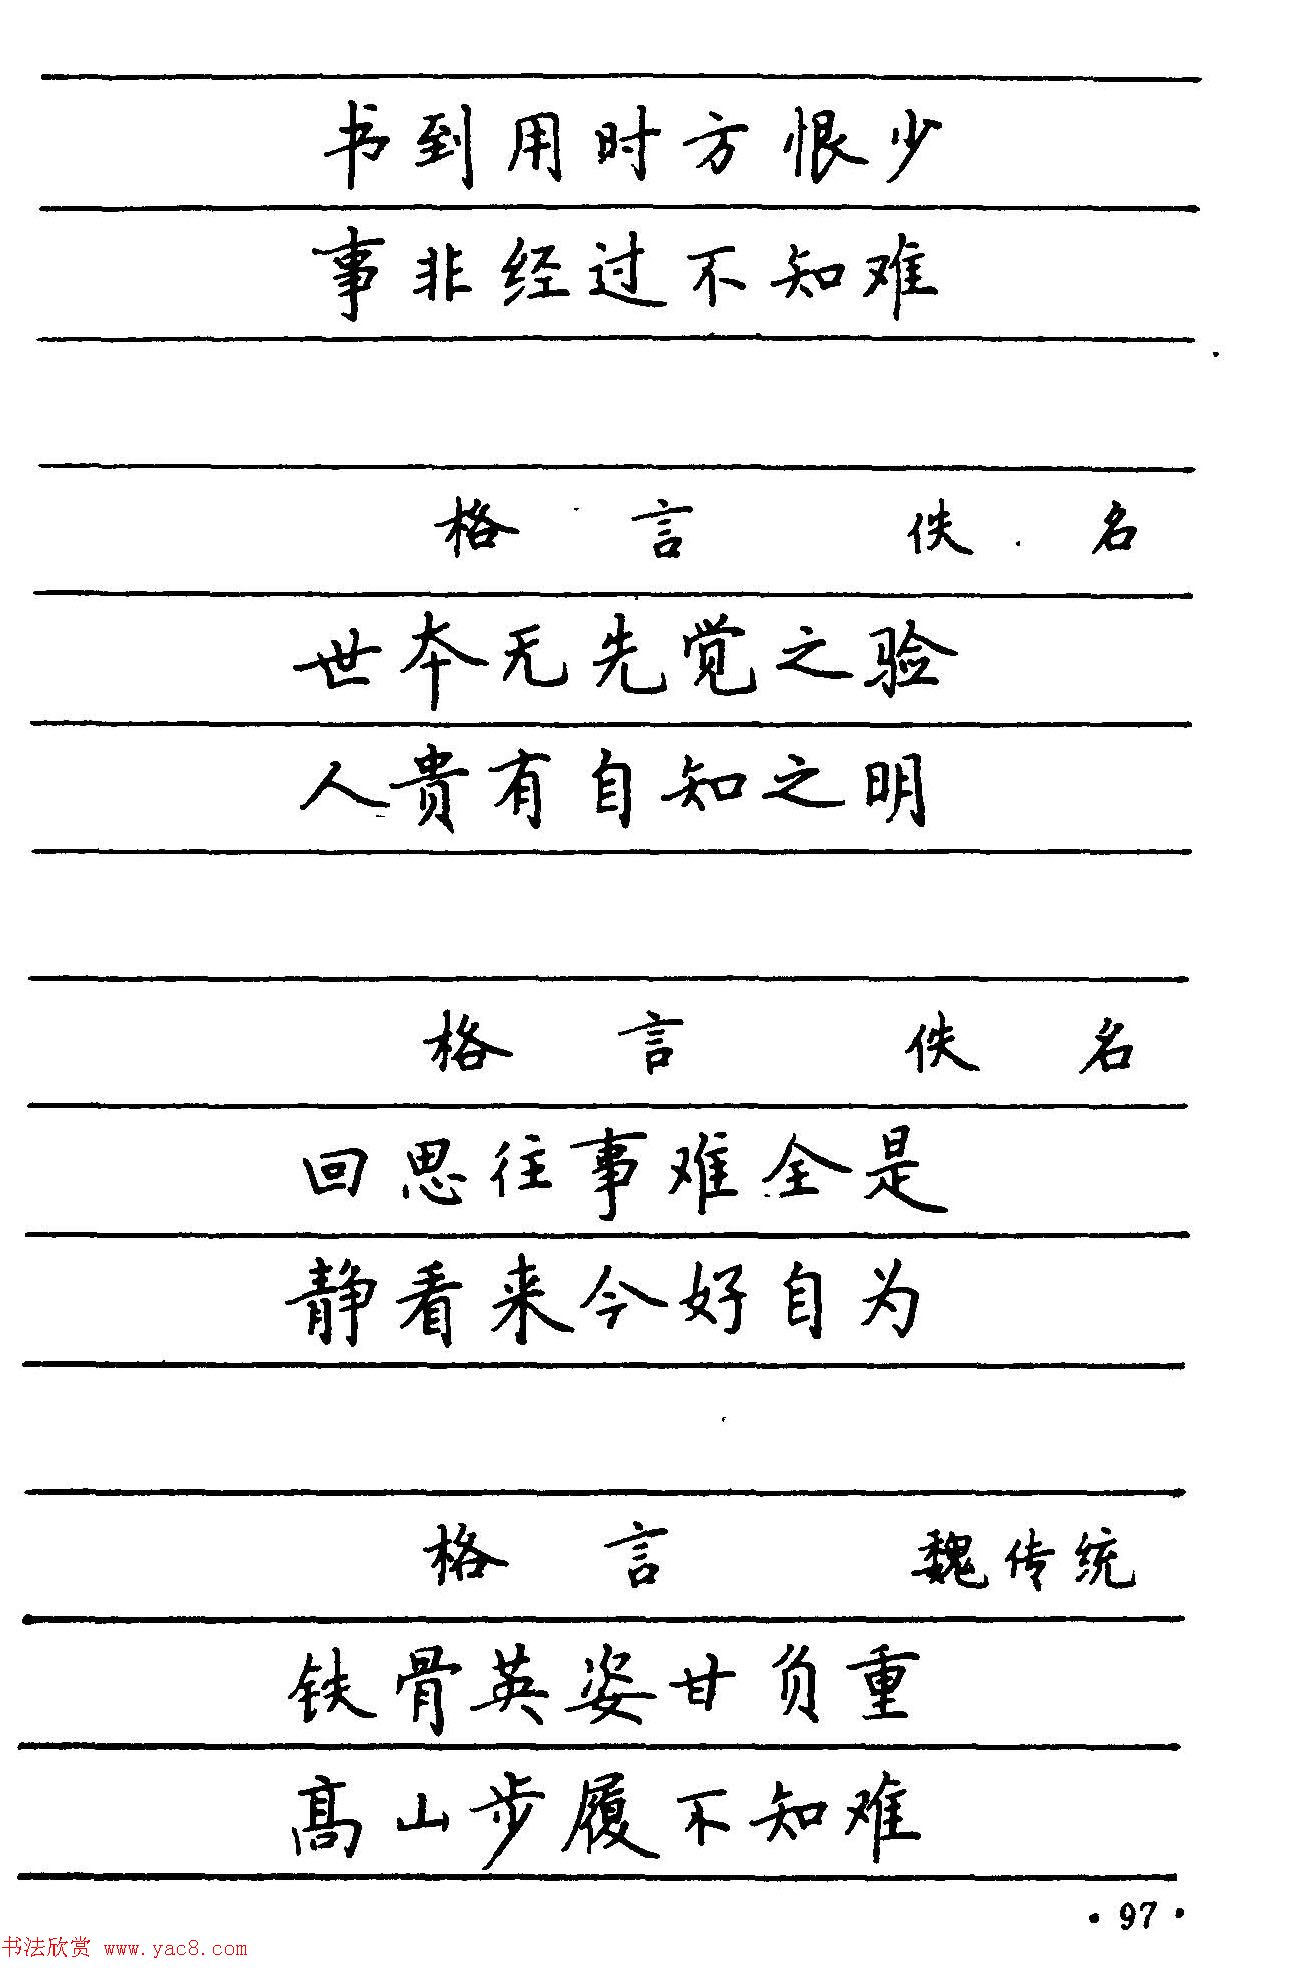 书到用时方恨少
事非经过不知难
格言 佚名
世本无先觉之验
人贵有自知之明
格言 佚名
回思往事难全是
静看来今好自为
格言 魏传统
铁骨英姿甘负重
高山步履不知难
·97·
书法欣赏 www.yac8.com